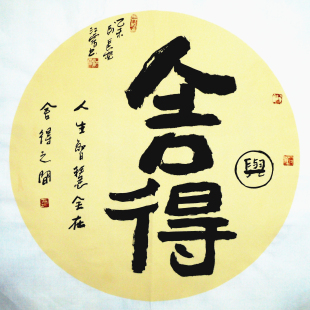 與
舍得
人生智慧全在
舍得之間
乙未